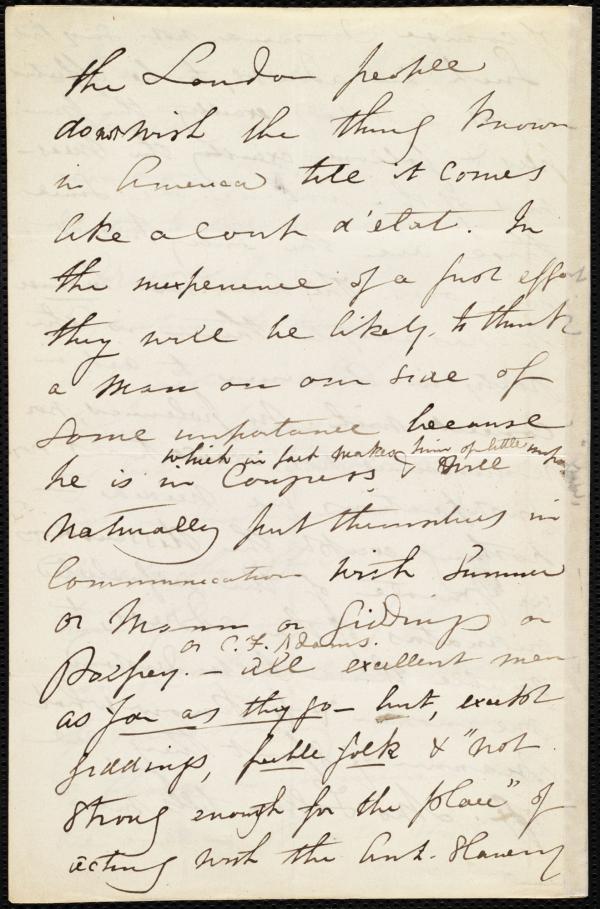 the London people
do not wish the thing known
in America till it comes
like a coup d'etat. In
the inexperience of a first effort
they will be likely to think
a man on our side of
some importance because
which in fact makes him of little impo
he is in Congress, & will
naturally put themselves in
communication with Sumner
or Mann or Giddings or
or C. F. Adams.
Palfrey. — all excellent men
as far as they go — but, except
Giddings, feeble folk & "not
strong enough for the place" of
acting with the Anti-Slavery